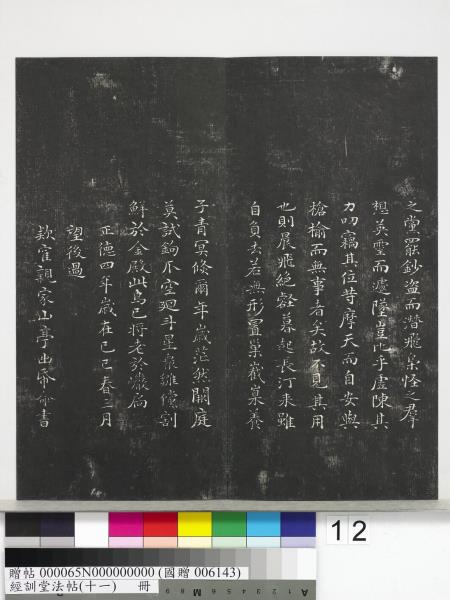 之黨罷鈔盜而潛飛梟怪之群
想英靈而遽墜豈比乎盧陳其
力叨竊其位苟摩天而自安與
槍榆而無事者矣故不見其用
也則晨飛絕壑暮起長汀來雖
自負去若無形置巢截巢養
子青冥倏爾年歲茫然闕庭
莫試鉤爪空迴斗星眾雖儻割
鮮於金殿此鳥已將老於巖扃
正德四年歲在己巳春三月
望後過
欽宦親家山亭出帋命書
12
贈帖 000065N000000000 (國贈 006143)
經訓堂法帖(十一) 冊